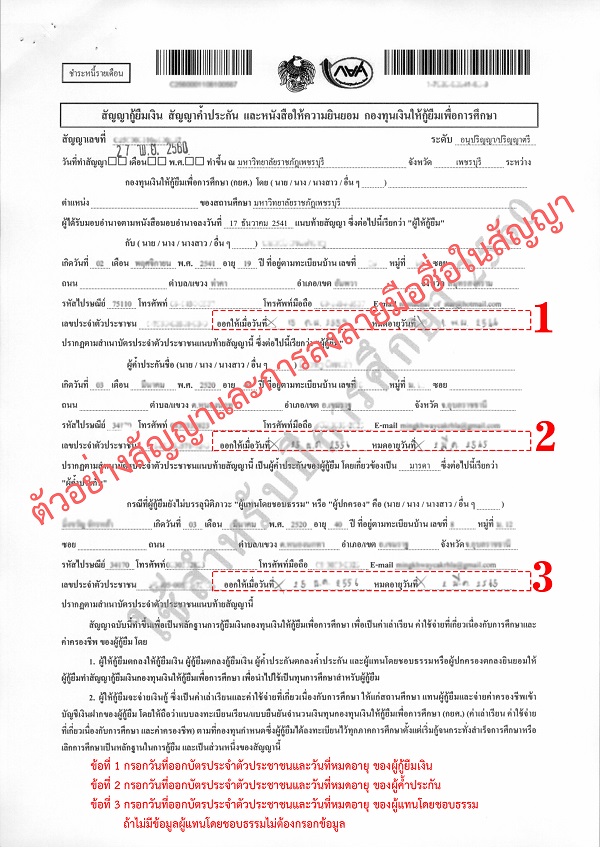 ชำระหนี้รายเดือน
กยศ
สัญญากู้ยืมเงิน สัญญาค้ำประกัน และหนังสือให้ความยินยอม กองทุนเงินให้กู้ยืมเพื่อการศึกษา
สัญญาเลขที่ ระดับ อนุปริญญา/ปริญญาตรี
27 พ.ย. 2560
วันที่ทำสัญญา เดือน พ.ศ. ทำขึ้น ณ มหาวิทยาลัยราชภัฏเพชรบุรี จังหวัด เพชรบุรี ระหว่าง
กองทุนเงินให้กู้ยืมเพื่อการศึกษา (กยศ.) โดย (นาย / นาง / นางสาว / อื่น ๆ )
ตำแหน่ง ของสถานศึกษา มหาวิทยาลัยราชภัฏเพชรบุรี
ผู้ได้รับมอบอำนาจตามหนังสือมอบอำนาจลงวันที่ 17 ธันวาคม 2541 แนบท้ายสัญญา ซึ่งต่อไปนี้เรียกว่า "ผู้ให้กู้ยืม"
กับ (นาย / นาง / นางสาว / อื่น ๆ )
เกิดวันที่ 02 เดือน พฤศจิกายน พ.ศ. 2541 อายุ 19 ปี ที่อยู่ตามทะเบียนบ้าน เลขที่ หมู่ที่ ซอย
ถนน ตำบล/แขวง ท่าคา อำเภอ/เขต อัมพวา จังหวัด
รหัสไปรษณีย์ 75110 โทรศัพท์ โทรศัพท์มือถือ E-mail
เลขประจำตัวประชาชน ออกให้เมื่อวันที่ หมดอายุวันที่
1
ปรากฏตามสำเนาบัตรประจำตัวประชาชนแนบท้ายสัญญานี้ ซึ่งต่อไปนี้เรียกว่า "ผู้กู้ยืม"
ผู้ค้ำประกันชื่อ (นาย / นาง / นางสาว / อื่น ๆ )
เกิดวันที่ 03 เดือน มีนาคม พ.ศ. 2520 อายุ ปี ที่อยู่ตามทะเบียนบ้าน เลขที่ หมู่ที่ ซอย
ถนน ตำบล/แขวง อำเภอ/เขต จังหวัด
รหัสไปรษณีย์ โทรศัพท์ โทรศัพท์มือถือ E-mail
เลขประจำตัวประชาชน ออกให้เมื่อวันที่ หมดอายุวันที่
2
ปรากฏตามสำเนาบัตรประจำตัวประชาชนแนบท้ายสัญญานี้ เป็นผู้ค้ำประกันของผู้กู้ยืม โดยเกี่ยวข้องเป็น มารดา ซึ่งต่อไปนี้เรียกว่า
"ผู้ค้ำประกัน"
กรณีที่ผู้กู้ยืมยังไม่บรรลุนิติภาวะ "ผู้แทนโดยชอบธรรม" หรือ "ผู้ปกครอง" คือ (นาย / นาง / นางสาว / อื่น ๆ )
เกิดวันที่ 03 เดือน มีนาคม พ.ศ. 2520 อายุ 40 ปี ที่อยู่ตามทะเบียนบ้าน เลขที่ หมู่ที่
ซอย ถนน ตำบล/แขวง อำเภอ/เขต จังหวัด
รหัสไปรษณีย์ 34170 โทรศัพท์ โทรศัพท์มือถือ E-mail
เลขประจำตัวประชาชน ออกให้เมื่อวันที่ หมดอายุวันที่
3
ปรากฏตามสำเนาบัตรประจำตัวประชาชนแนบท้ายสัญญานี้
สัญญาฉบับนี้ทำขึ้นเพื่อเป็นหลักฐานการกู้ยืมเงินกองทุนเงินให้กู้ยืมเพื่อการศึกษา เพื่อเป็นค่าเล่าเรียน ค่าใช้จ่ายที่เกี่ยวเนื่องกับการศึกษาและ
ค่าครองชีพ ของผู้กู้ยืม โดย
1. ผู้ให้กู้ยืมตกลงให้กู้ยืมเงิน ผู้กู้ยืมตกลงกู้ยืมเงิน ผู้ค้ำประกันตกลงค้ำประกัน และผู้แทนโดยชอบธรรมหรือผู้ปกครองตกลงยินยอมให้
ผู้กู้ยืมทำสัญญากู้ยืมเงินกองทุนเงินให้กู้ยืมเพื่อการศึกษา เพื่อนำไปใช้เป็นทุนการศึกษาสำหรับผู้กู้ยืม
2. ผู้ให้กู้ยืมจะจ่ายเงินกู้ ซึ่งเป็นค่าเล่าเรียนและค่าใช้จ่ายที่เกี่ยวเนื่องกับการศึกษา ให้แก่สถานศึกษา แทนผู้กู้ยืมและจ่ายค่าครองชีพเข้า
บัญชีเงินฝากของผู้กู้ยืม โดยให้ถือว่าแบบลงทะเบียนเรียน/แบบยืนยันจำนวนเงินทุนกองทุนเงินให้กู้ยืมเพื่อการศึกษา (กยศ.) (ค่าเล่าเรียน ค่าใช้จ่าย
ที่เกี่ยวเนื่องกับการศึกษา และค่าครองชีพ) ตามที่กองทุนกำหนดซึ่งผู้กู้ยืมได้ลงทะเบียนไว้ทุกภาคการศึกษาตั้งแต่เริ่มกู้จนกระทั่งสำเร็จการศึกษาหรือ
เลิกการศึกษาเป็นหลักฐานในการกู้ยืม และเป็นส่วนหนึ่งของสัญญานี้
ตัวอย่างสัญญาและการลงลายมือชื่อในสัญญา
ใช้สำหรับปีการศึกษา 2560
ข้อที่ 1 กรอกวันที่ออกบัตรประจำตัวประชาชนและวันที่หมดอายุ ของผู้กู้ยืมเงิน
ข้อที่ 2 กรอกวันที่ออกบัตรประจำตัวประชาชนและวันที่หมดอายุ ของผู้ค้ำประกัน
ข้อที่ 3 กรอกวันที่ออกบัตรประจำตัวประชาชนและวันที่หมดอายุ ของผู้แทนโดยชอบธรรม
ถ้าไม่มีข้อมูลผู้แทนโดยชอบธรรมไม่ต้องกรอกข้อมูล